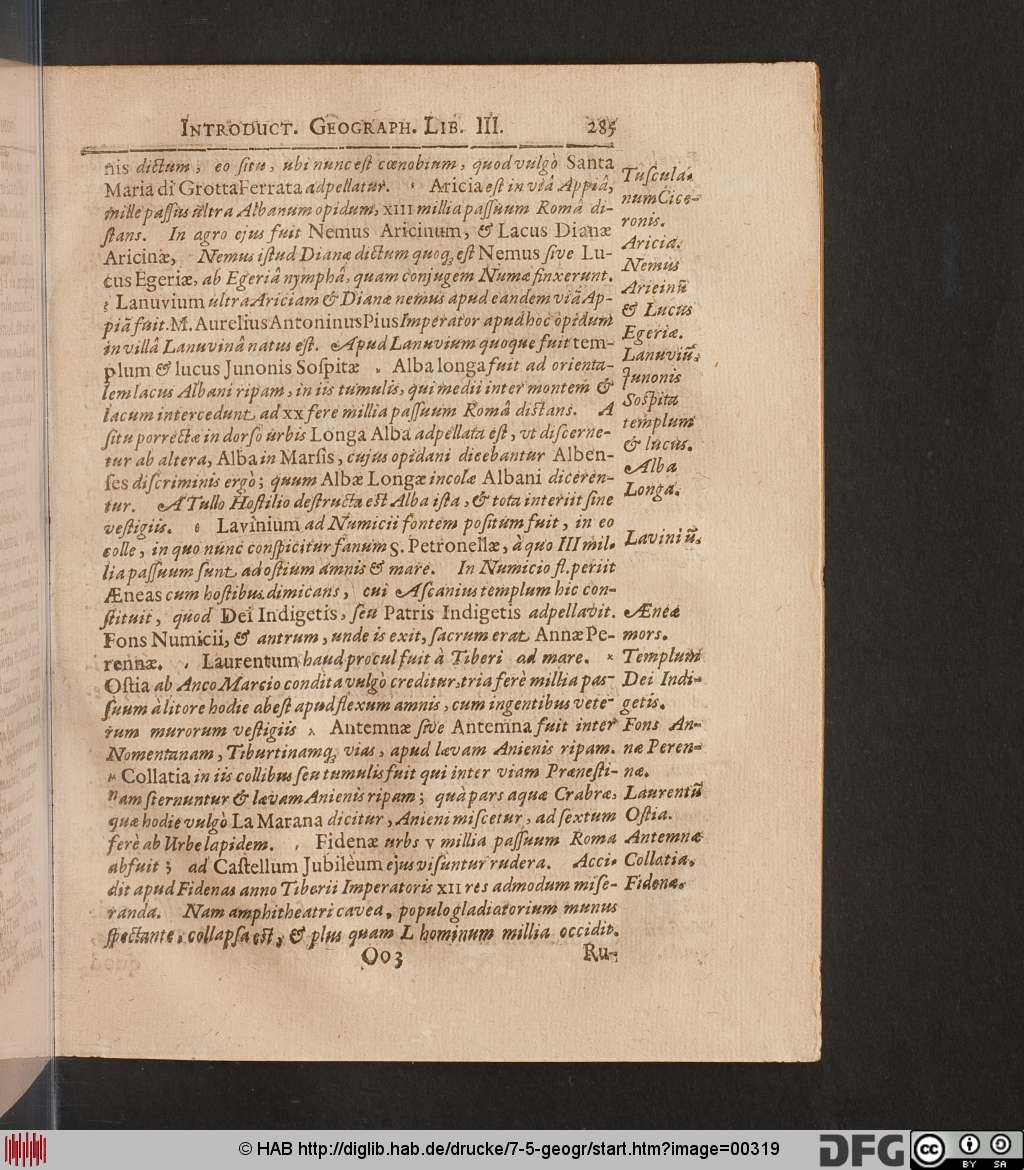 INTRODUCT. GEOGRAPH. LIB. III. 285
nis dictum, eo situ, ubi nunc est cœnobium, quod vulgò Santa
Maria di GrottaFerrata adpellatur. Aricia est in viâ Appiâ,
mille passus ultra Albanum opidum, XIII millia passuum Româ di-
stans. In agro ejus fuit Nemus Aricinum, & Lacus Dianæ
Aricinæ, Nemus istud Dianæ dictum quoq; est Nemus sive Lu-
cus Egeriæ, ab Egeriâ nymphâ, quam conjugem Numæ finxerunt.
Lanuvium ultra Ariciam & Dianæ nemus apud eandem viã Ap-
piã fuit. M. Aurelius Antoninus Pius Imperator apud hoc opidum
in villâ Lanuvinâ natus est. Apud Lanuvium quoque fuit tem-
plum & lucus Junonis Sospitæ. Alba longa fuit ad orienta-
lem lacus Albani ripam, in iis tumulis, qui medii inter montem &
lacum intercedunt, ad XX fere millia passuum Româ distans. A
situ porrectæ in dorso urbis Longa Alba adpellata est, vt discerne-
tur ab altera, Alba in Marsis, cujus opidani dicebantur Alben-
ses discriminis ergò; quum Albæ Longæ incolæ Albani diceren-
tur. A Tullo Hostilio destructa est Alba ista, & tota interiit sine
vestigiis. Lavinium ad Numicii fontem positum fuit, in eo
colle, in quo nunc conspicitur fanum S. Petronellæ, à quo III mil-
lia passuum sunt ad ostium amnis & mare. In Numicio fl. periit
Æneas cum hostibus dimicans, cui Ascanius templum hic con-
stituit, quod Dei Indigetis, seu Patris Indigetis adpellavit.
Fons Numicii, & antrum, unde is exit, sacrum erat Annæ Pe-
rennæ. Laurentum haud procul fuit à Tiberi ad mare.
Ostia ab Anco Marcio condita vulgò creditur, tria ferè millia pas-
suum à litore hodie abest apud flexum amnis, cum ingentibus vete-
rum murorum vestigiis. Antemnæ sive Antemna fuit inter
Nomentanam, Tiburtinamq; vias, apud lævam Anienis ripam.
Collatia in iis collibus seu tumulis fuit qui inter viam Prænesti-
nam sternuntur & lævam Anienis ripam; quà pars aquæ Crabræ,
quæ hodie vulgò La Marana dicitur, Anieni miscetur, ad sextum
ferè ab Urbe lapidem. Fidenæ urbs V millia passuum Roma
abfuit; ad Castellum Jubilèum ejus visuntur rudera. Acci-
dit apud Fidenas anno Tiberii Imperatoris XII res admodum mise-
randa. Nam amphitheatri cavea, populo gladiatorium munus
spectante, collapsa est, & plus quam L hominum millia occidit.
Oo3 Ru-
Tuscula-
num Cice-
ronis.
Aricia.
Nemus
Aricinũ
& Lucus
Egeriæ.
Lanuviũ.
Junonis
Sospita
templum
& lucus.
Alba
Longa.
Laviniũ.
Æneæ
mors.
Templum
Dei Indi-
getis.
Fons An-
næ Peren-
næ.
Laurentũ
Ostia.
Antemnæ
Collatia.
Fidenæ.
© HAB http://diglib.hab.de/drucke/7-5-geogr/start.htm?image=00319
DFG
cc BY SA